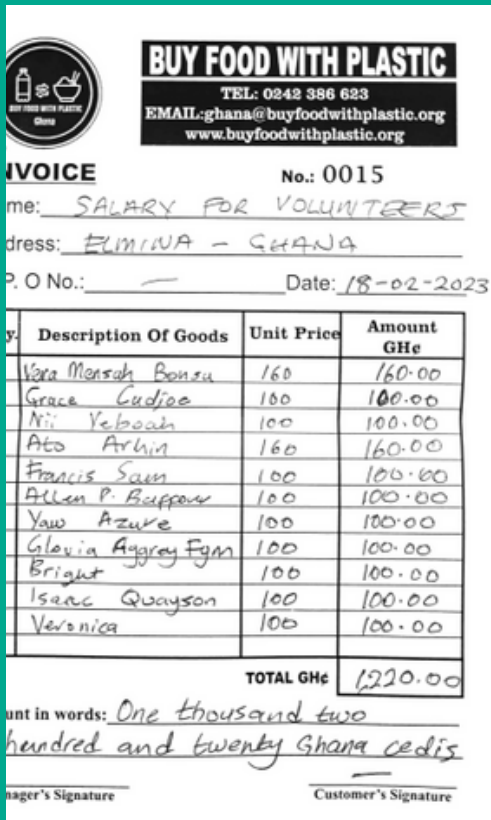 BUY FOOD WITH PLASTIC
Ghana
BUY FOOD WITH PLASTIC
TEL: 0242 386 623
EMAIL:ghana@buyfoodwithplastic.org
www.buyfoodwithplastic.org
NVOICE No.: 0015
me: SALARY FOR VOLUNTEERS
dress: ELMINA - GHANA
P. O No.: — Date: 18-02-2023
y. Description Of Goods Unit Price Amount GH¢
Vera Mensah Bonsu 160 160.00
Grace Cudjoe 100 100.00
Nii Yeboah 100 100.00
Ato Arhin 160 160.00
Francis Sam 100 100.00
Allen P. Baffour 100 100.00
Yaw Azure 100 100.00
Gloria Aggrey Fynn 100 100.00
Bright 100 100.00
Isaac Quayson 100 100.00
Veronica 100 100.00
TOTAL GH¢ 1,220.00
unt in words: One thousand two
hundred and twenty Ghana cedis
nager's Signature Customer's Signature